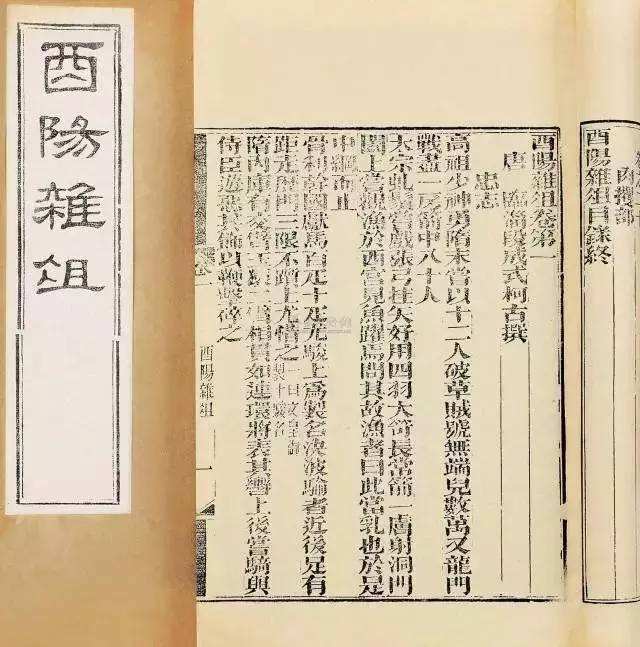 酉陽雜俎
肉攫部
酉陽雜俎目錄終
酉陽雜俎卷第一
唐 臨淄段成式柯古撰
忠志
高祖少神勇隋末嘗以十二人破草賊號無端兒數萬又龍門
戰盡一房箭中八十人
太宗虬鬚嘗戲張弓挂矢好用四羽大笴長常箭一膚射洞門
闔上嘗觀漁於西宮見魚躍焉問其故漁者曰此當乳也於是
中網而止
骨利幹國獻馬百疋十疋尤駿上爲製名決波騟者近後足有
距走歷門三限不躓上尤惜之
隋內庫有交臂玉猨二臂相貫如連環將表其轡上後嘗騎與
侍臣遊惡其飾以鞭擊碎之
酉陽雜俎 一